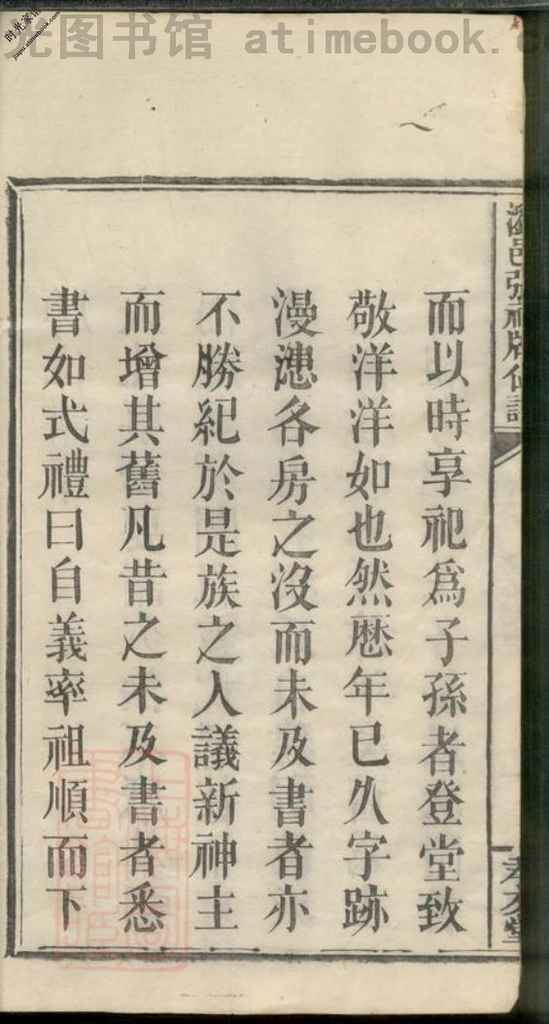 光图书馆 atimebook.c
而以時享祀爲子孫者登堂致
敬洋洋如也然厯年已久字跡
漫漶各房之沒而未及書者亦
不勝紀於是族之人議新神主
而增其舊凡昔之未及書者悉
書如式禮曰自義率祖順而下